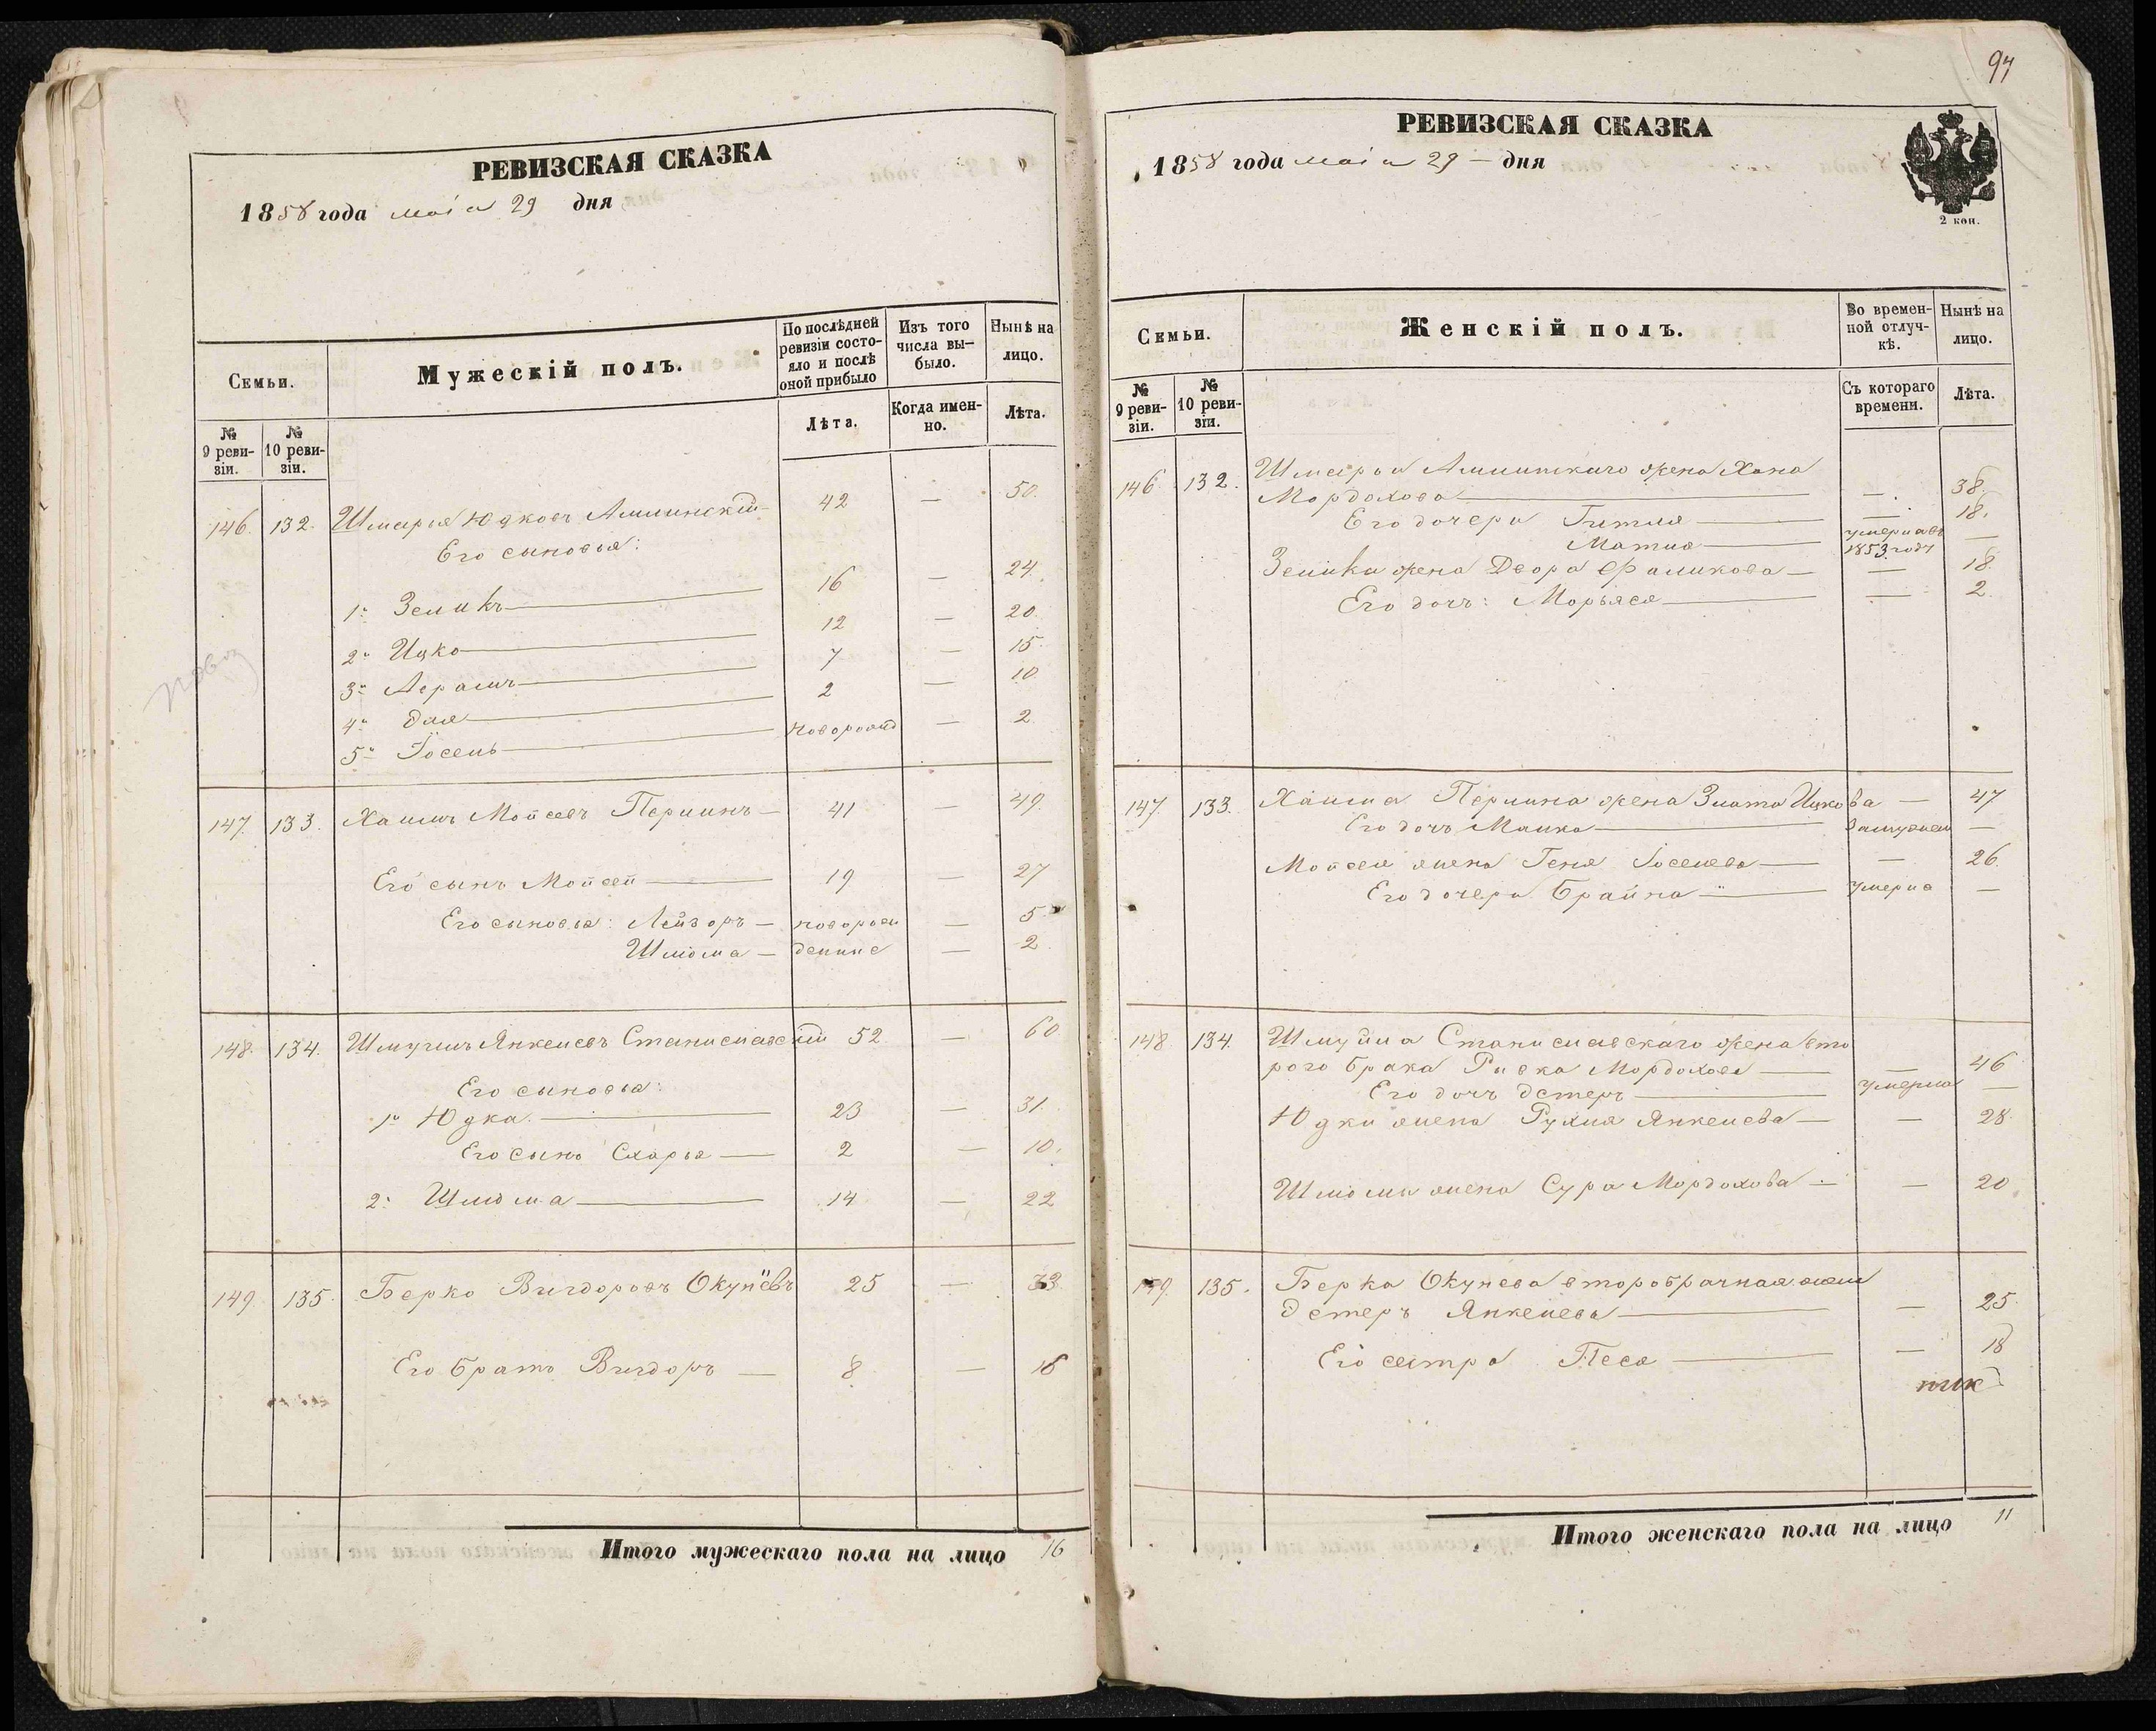 РЕВИЗСКАЯ СКАЗКА
1858 года маія 29 дня
Семьи.
Мужескій полъ.
По послѣдней ревизіи состояло и послѣ оной прибыло
Изъ того числа выбыло.
Нынѣ на лицо.
№ 9 ревизіи.
№ 10 ревизіи.
Лѣта.
Когда именно.
Лѣта.
146. 132. Шмарья Юдковъ 42 — 50.
Его сыновья:
1й Зеликъ 16 — 24.
2й Ицко 12 — 20.
3й 7 — 15.
4й 2 — 10
5й Іосель — 2.
147. 133. Хаимъ Мойсеевъ Перминъ 41 — 49.
Его сынъ Мойсей 19 — 27
Его сыновья: Лейзоръ — новорож — 5
Шліома — денные — 2.
148. 134. Шмуилъ Янкелевъ Станиславскій 52 — 60
Его сыновья:
1й Юдка. 23 — 31.
Его сынъ Схарья — 2 — 10.
2й Шліома 14 — 22
149. 135. Берко Вигдоровъ Окунёвъ 25 — 33.
Его братъ Вигдоръ — 8 — 16
Итого мужескаго пола на лицо 16
97
РЕВИЗСКАЯ СКАЗКА
1858 года маія 29 — дня
2 коп.
Семьи.
Женскій полъ.
Во временной отлучкѣ.
Нынѣ на лицо.
№ 9 ревизіи.
№ 10 ревизіи.
Съ котораго времени.
Лѣта.
146. 132. Шмарьи жена Хана
Мордохова — 38.
Его дочери Гитля — 18.
Матля умерла въ 1853 году —
Зелика жена Двора Фаликова — — 18
Его дочь: Морьяся — 2.
147. 133. Хаима Пермина жена Злата Ицкова — 47
Его дочь Малка замужем —
Мойсея жена Геня Іоселева — — 26.
Его дочери Брайна умерла —
148 134. Шмуйла Станиславскаго жена вто
рого брака Ривка Мордохова — — 46
Его дочь Эстеръ умерла —
Юдки жена Рухля Янкелева — — 28.
Шліомы жена Сура Мордохова — — 20
149. 135. Берка Окунева второбрачная жена
Эстеръ Янкелева — 25
Его сестра Песя — 18
Итого женскаго пола на лицо 11